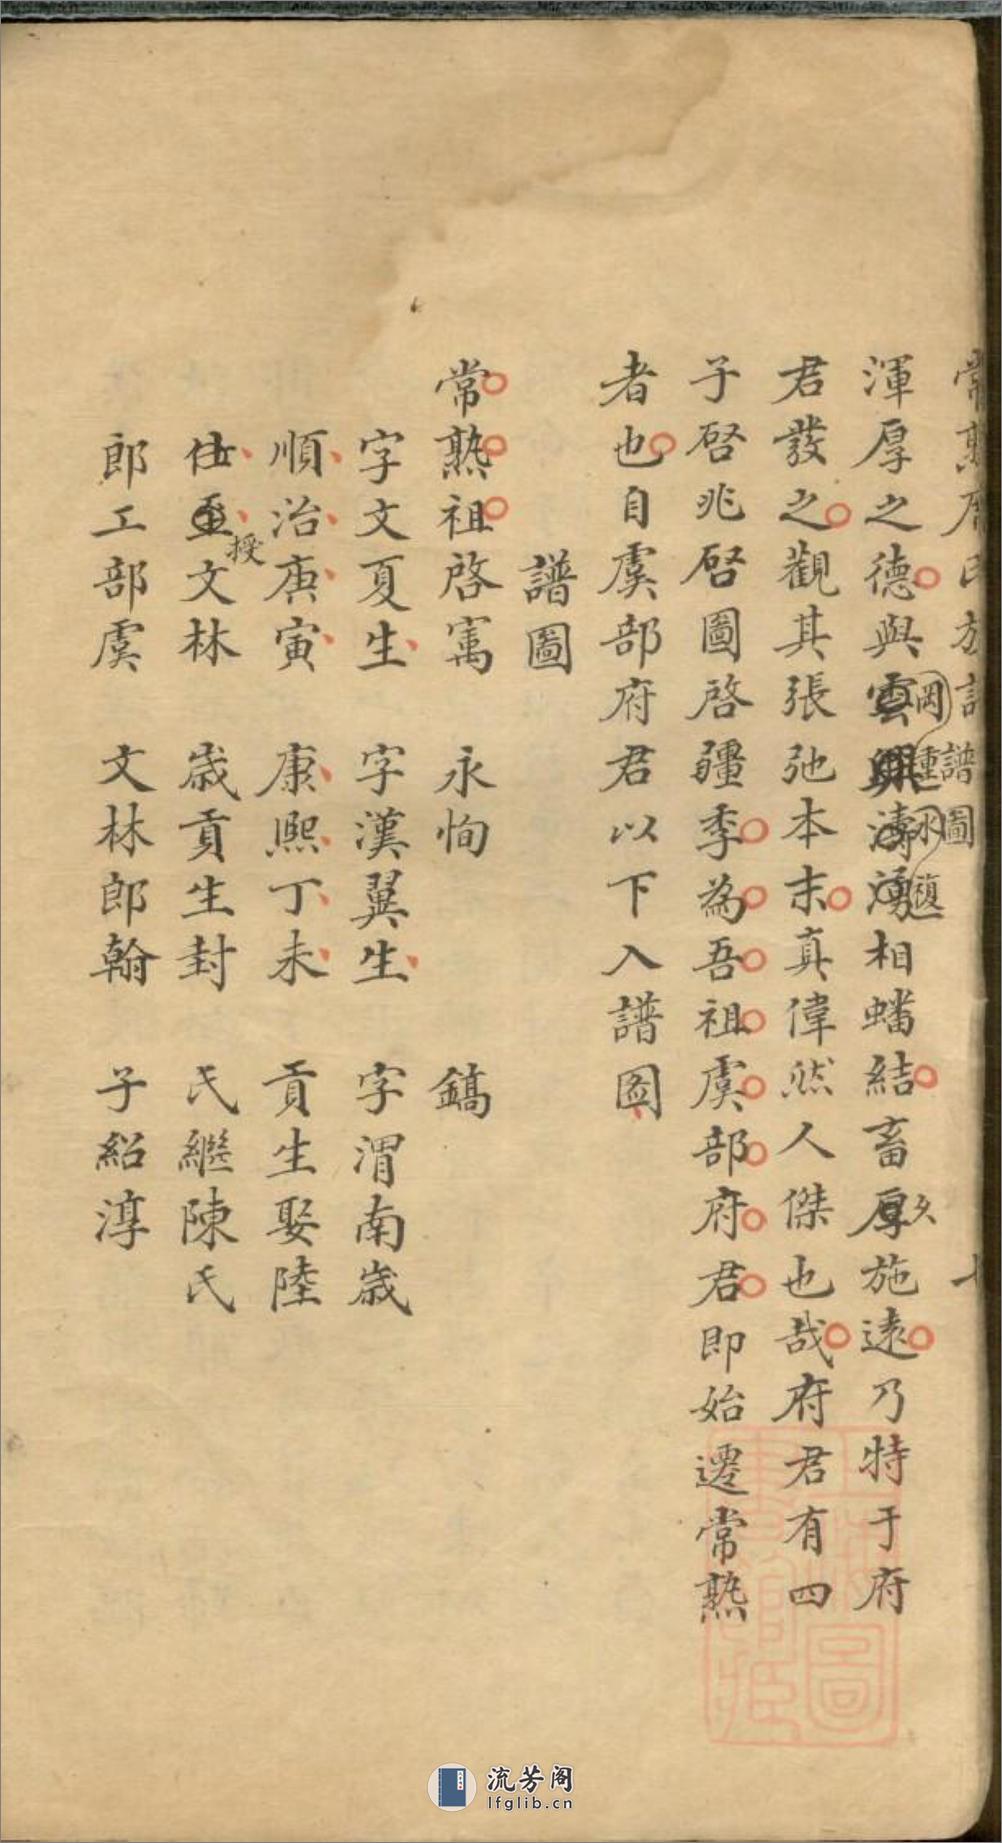 常熟屈氏族譜 譜圖
渾厚之德與岡重水複相蟠結畜久施遠乃特于府
君發之觀其張弛本末真偉然人傑也哉府君有四
子啓兆啓圖啓疆季為吾祖虞部府君即始遷常熟
者也自虞部府君以下入譜圖
譜圖
常熟祖啓寯 永恂 鎬
字文夏生 字漢翼生 字渭南歲
順治庚寅 康熙丁未 貢生娶陸
仕授文林 歲貢生封 氏繼陳氏
郎工部虞 文林郎翰 子紹淳
流芳阁
lfglib.cn